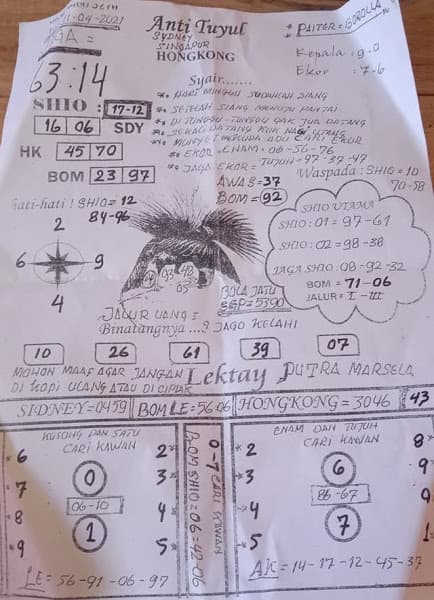 11-04-2021
Anti Tuyul
SYDNEY
SINGAPUR
HONGKONG
* PAITER = GOROLLA
Kepala : 9.0
Ekor : 7-6
63:14
Syair.......
** HARI MINGGU SUDAHKAN SIANG
** SETELAH SIANG MENUJU PANTAI
** DI TUNGGU-TUNGGU GAK JUA DATANG
** SEKALI DATANG KOK
** EKOR ENAM = 06-56-76
** JAGA EKOR = TUJUH = 97-37-47
SHIO : 17-12
16 06 SDY
HK 45 70
BOM 23 97
AWAS = 37
BOM = 92
Waspada : SHIO = 10
70-58
Hati-hati ! SHIO = 12
84-96
2
6 9
4
SHIO UTAMA
SHIO : 01 = 97-61
SHIO : 02 = 98-38
JAGA SHIO : 08 = 92-32
BOM = 71-06
JALUR = I - III
BOLA JATU
SGP = 5390
JALUR UANG =
Binatangnya ...? JAGO KELAHI
10 26 61 39 07
MOHON MAAF AGAR JANGAN
DI KOPI ULANG ATAU DI CIPLAK
Lektay PUTRA MARSELA
SIDNEY=0459 BOM LE = 56 06 HONGKONG = 3046 43
KOSONG DAN SATU
CARI KAWAN
6 2
7 0 3
8 06-10 4
9 1 5
LE = 56-91-06-97
BOM SHIO = 06 = 42-06
0-7 CARI KAWAN
ENAM DAN TUJUH
CARI KAWAN
2 8
3 6 9
4 86-67
5 7 1
AK = 14-17-12-45-37